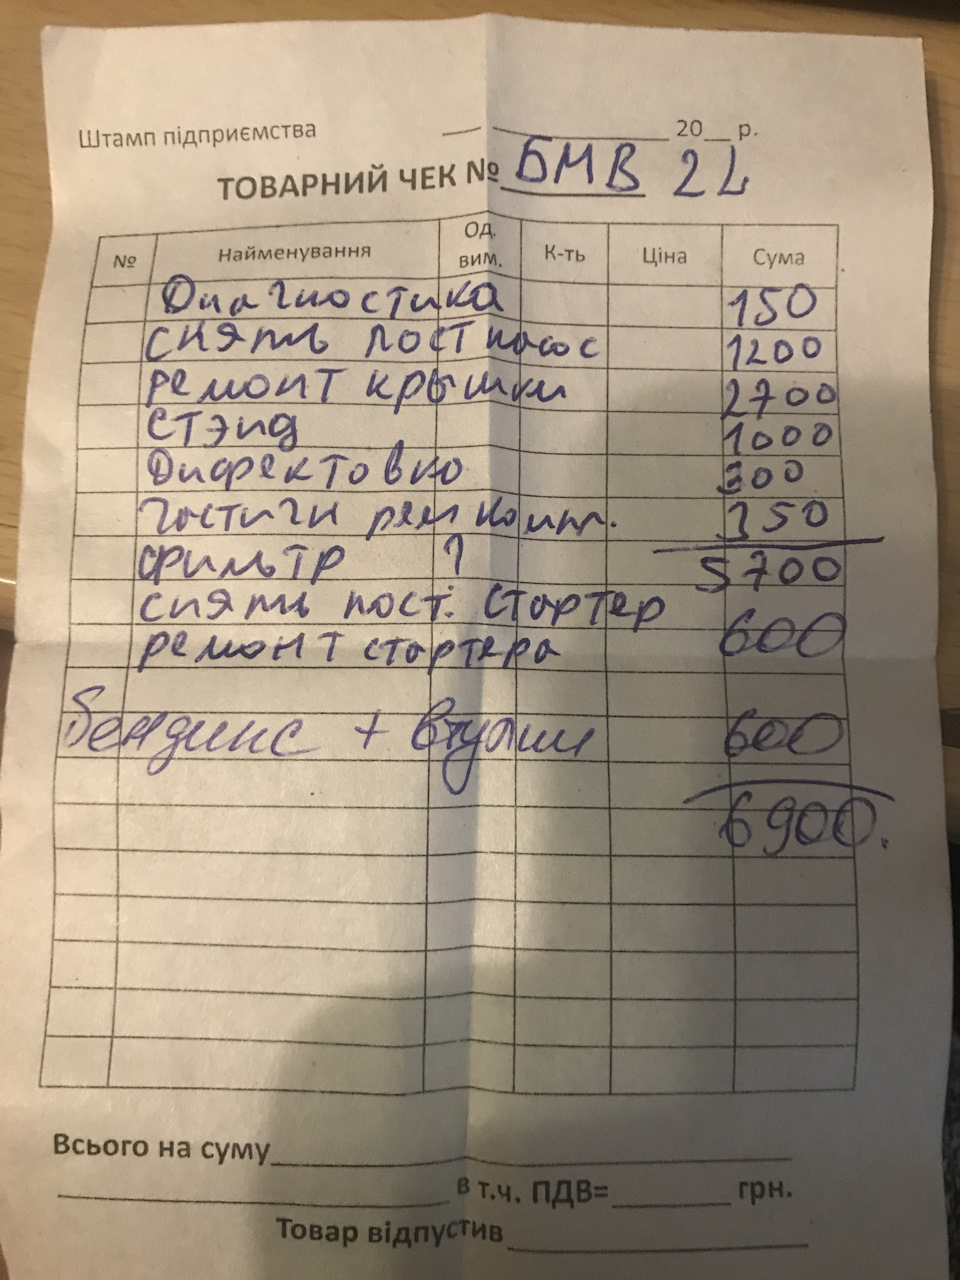 Штамп підприємства ___ ____________ 20__ р.
ТОВАРНИЙ ЧЕК № БМВ 2L
№ Найменування Од. вим. К-ть Ціна Сума
Диагностика 150
сняти пост насос 1200
ремонт крышки 2700
стэнд 1000
Дифектовко 300
частичн рем компл. 350
фильтр 1 5700
сняти пост. стартер
ремонт стартера 600
бендикс + втулки 600
6900.
Всього на суму
в т.ч. ПДВ= грн.
Товар відпустив